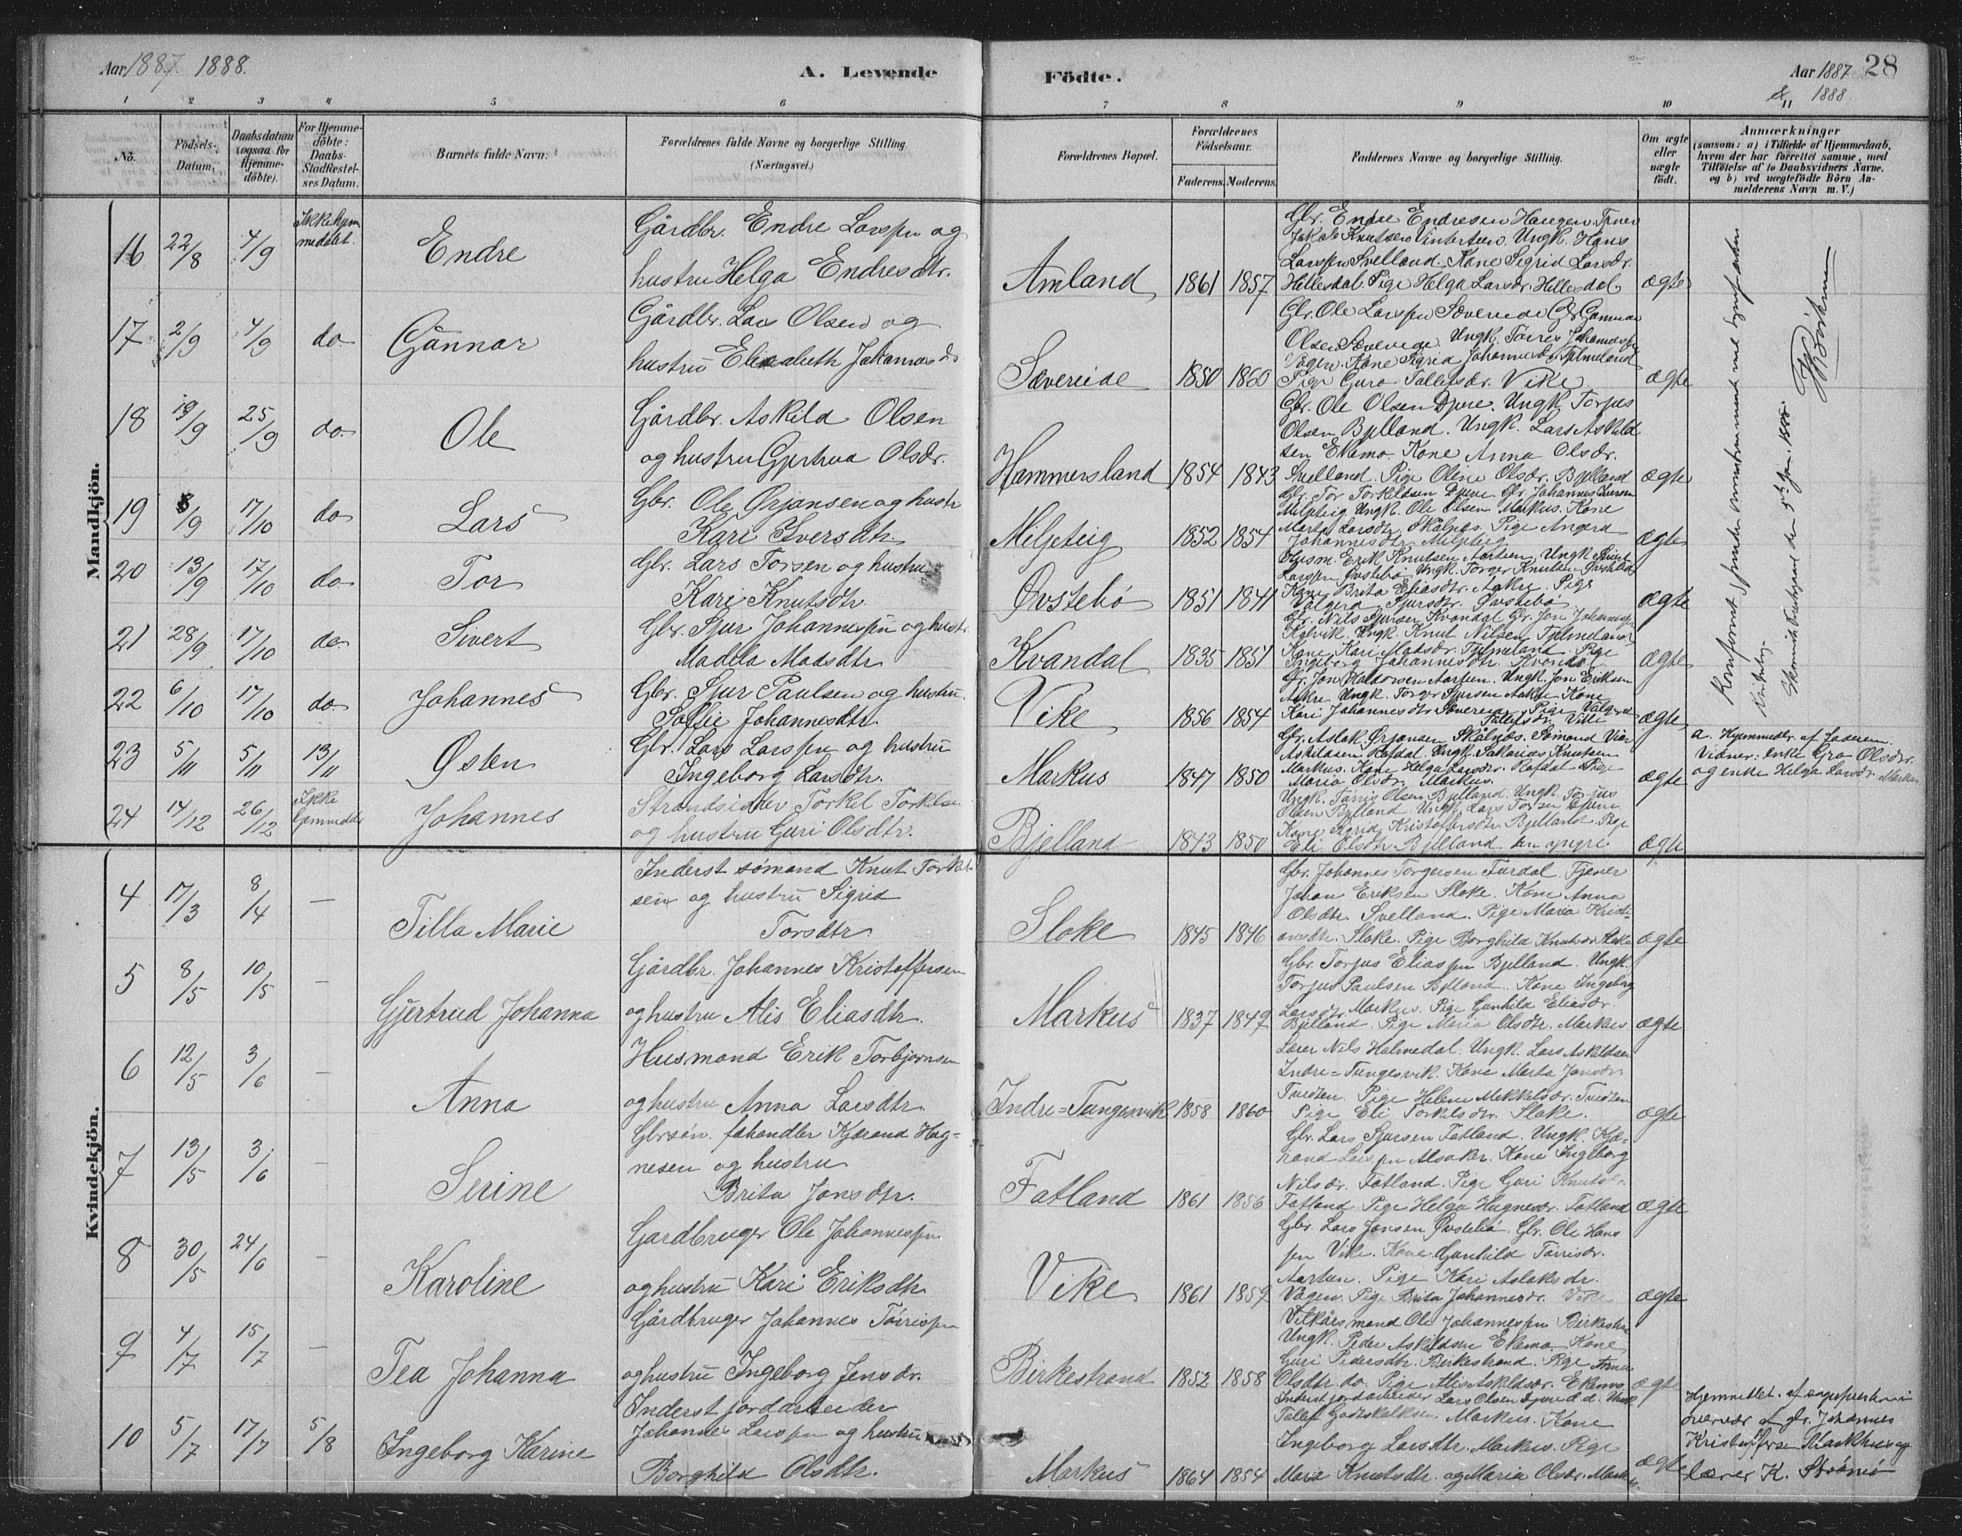 Aar 1887 1888.
A. Levende
Födte.
Aar 1887 28
& 1888.
1 2 3 4 5 6 7 8 9 10 11
No.
Födsels-Datum.
Daabsdatum (ogsaa for Hjemmedöbte).
For Hjemmedöbte: Daabs-Stadfæstelses Datum.
Barnets fulde Navn.
Forældrenes fulde Navne og borgerlige Stilling
(Næringsvei.)
Forældrenes Bopæl.
Forældrenes Födselsaar.
Faderens. Moderens.
Faddernes Navne og borgerlige Stilling.
Om ægte eller uægte födt.
Anmærkninger
(saasom: a) i Tilfælde af Hjemmedaab, hvem der har forrettet samme, med Tilföielse af to Daabsvidners Navne. og b) ved uægtefödte Börn Anmelderens Navn m. V.)
Mandkjön.
16 22/8 4/9 Endre
Gårdbr. Endre Larspn og
hustru Helga Endresdtr.
Amland 1861 1857
Gbr. Endre Endresen Haugen
Jakob Knutsen Vinterten. Ungk. Hans
Larspn Svelland. Kone Sigrid Larsdr.
Hellesdal. Pige Helga Larsdr. Hellesdal
ægte
17 2/9 4/9 do Gunnar
Gårdbr. Lars Olsen og
hustru Elisabeth Johannesd
Sævereide 1850 1860
Gbr. Ole Larspn Sævereide Gbr Gunnar
Olsen Sævereide. Ungk. Tørris Johannespn
Vågen. Kone Sigrid Johannesdr Fjelmeland
Pige Guro Tollefsdr. Vike
ægte
18 19/9 25/9 do. Ole
Gårdbr. Askild Olsen
og hustru Gjertrua Olsdr.
Hammersland 1854 1843
Gbr. Ole Olsen Djuve. Ungk. Torjus
Olsen Bjelland. Ungk. Lars Askild
sen Ekemo. Kone Anna Olsdr.
Svelland. Pige Oline Olsdr. Bjelland
ægte
19 8/9 17/10 do Lars
Gbr. Ole Ørjansen og hustr
Kari Iversdtr
Miljeteig 1852 1854
Gbr. Tor Torkildsen Djuve Gbr. Johannes Larsen
Miljeteig Ungk. Ole Olsen Markus. Kone
Marta Larsdtr Skålnes. Pige Angera
Johannesdtr Miljeteig
ægte
20 13/9 17/10 do Tor
Gbr. Lars Torsen og hustru
Kari Knutsdtr.
Øvstebö 1851 1841
Husm. Erik Knutsen Aarteen Ungk Sjurt
Larspn Øvstebø Ungk. Torger Knutsen Øvstebø
Kone Brita Eliasdtr. Aakre. Pige
Valgera Sjursdr. Øvstebö
ægte
21 28/9 17/10 do Sivert
Gbr. Sjur Johannespn og hustr.
Madela Madsdtr
Kvandal 1835 1851
Gbr. Nils Sjursen Kvandal Gbr. Jon Johannespn
Kalvik. Ungk. Knut Nilsen Fjelmeland
Kone Kari Madsdr. Fjelmeland. Pige
Ingeborg Johannesdtr. Kvandal
ægte
22 6/10 17/10 do Johannes
Gbr. Sjur Paulsen og hustru
Soffie Johannesdtr.
Vike 1856 1854
Gbr. Jon Haldorsen Aarteen. Ungk. Jon Eriksen
Aakre. Ungk. Torger Sjursen Aakre Kone
Kari Johannesdtr Sævereide. Pige Valgera
Tollefsdr. Vike
ægte
23 5/11 5/11 13/11 Østen
Gbr. Lars Larspn og hustru
Ingeborg Larsdtr.
Markus 1847 1850
Gbr. Aslak Ørjansen Skålnes. Sømand
Askildsen Rafdal. Ungk. Sakarias Knutsen
Markus. Kone Helga Larsdr. Rafdal Pige
Maria Olsdr. Markus.
ægte
a. Hjemmedbt. af Faderen.
Vidner: enke Gro Olsdr.
og enke Helga Larsdr. Markus
24 14/12 26/12 Ikke hjemmedbt Johannes
Strandsidder Torkel Torkelsen
og hustru Guri Olsdtr.
Bjelland 1843 1850
Ungk. Tørris Olsen Bjelland. Ungk. Torjus
Olsen Bjelland. Ungk Lars Torsen Djuve
Kone Sigrid Kristoffersdtr. Bjelland. Pige
Eli Olsdtr Bjelland den yngre.
ægte
Konferert
Skonevik den 5te Jan. 1888.
Kvindekjön.
4 17/3 8/4 — Tilla Marie
Inderst sømand Knut Torkel
sen og hustru Sigrid
Torsdtr.
Sloke 1845 1846
Gbr. Johannes Torgersen Furdal Tjener
Johan Eriksen Sloke. Kone Anna
Olsdtr. Svelland. Pige Maria Kristi-
ansdtr. Sloke. Pige Borghild Knutsdr Sloke
ægte
5 8/5 10/5 — Gjertrud Johanna
Gårdbr. Johannes Kristoffersen
og hustru Alis Eliasdtr.
Markus 1837 1847
Gbr. Torjus Eliaspn Bjelland. Ungk.
Torjus Paulsen Bjelland. Kone Ingeborg
Larsdr. Markus. Pige Gunhild Eliasdr.
Bjelland. Pige Maria Olsdtr. Markus
ægte
6 12/5 3/6 — Anna
Husmand Erik Torbjørnsen
og hustru Anna Larsdtr.
Indre=Tungesvik 1858 1860
Lærer Nils Halmedal. Ungk. Lars Askildsen
Indre=Tungesvik. Kone Marta Jonsdr.
Tveiten. Pige Helene Mikkelsdr. Tveiten
Pige Eli Torkelsdr. Sloke.
ægte
7 13/5 3/6 — Serine
Gbrsøn. fehandler Kjærand Hag-
nesen og hustru
Brita Jonsdtr.
Fatland 1861 1856
Gbr. Lars Sjursen Fatland. Ungk. Kjæ-
rand Larspn Alsaker. Kone Ingeborg
Nilsdr. Fatland. Pige Guri Knutsdr.
Fatland. Pige Helga Hagnesdr. Fatland
ægte
8 30/5 24/6 — Karoline
Gardbruger Ole Johannespn
og hustru Kari Eriksdtr
Vike 1861 1859
Gbr. Lars Jonsen Øvstebö. Gbr. Ole Hans
pn Vike. Kone Gunhild Tørrisdr.
Aarteen. Pige Kari Aslaksdr.
Vågen. Pige Brita Johannesdr. Vike
ægte
9 4/7 15/7 — Tea Johanna
Gårdbruger Johannes Tørrispn
og hustru Ingeborg Jensdr.
Birkestrand 1852 1858
Vilkårsmand Ole Johannespn Birkestr.
Ungk. Peder Askildsen Ekemo Kone
Guri Pedersdtr. Birkestrand. Pige Anna
Olsdtr do. Pige Alis Askildsdr. Ekemo
ægte
10 5/7 17/7 5/8 Ingeborg Karine
Inderst jordarbeider
Johannes Larspn og hustru
Borghild Olsdtr.
Markus 1864 1854
Inderst jordarbeider Lars Olsen Djuve d.d. Ungk
Tollef Godtskalksen Markus. Kone
Ingeborg Larsdtr. Markus. Pige
Maria Knutsdtr. og Maria Olsdr. Markus
ægte
Hjemmedbt. af sognepresten i
nærvær af gbr. Johannes
Kristoffersen Markhus og
lærer K. Strømø